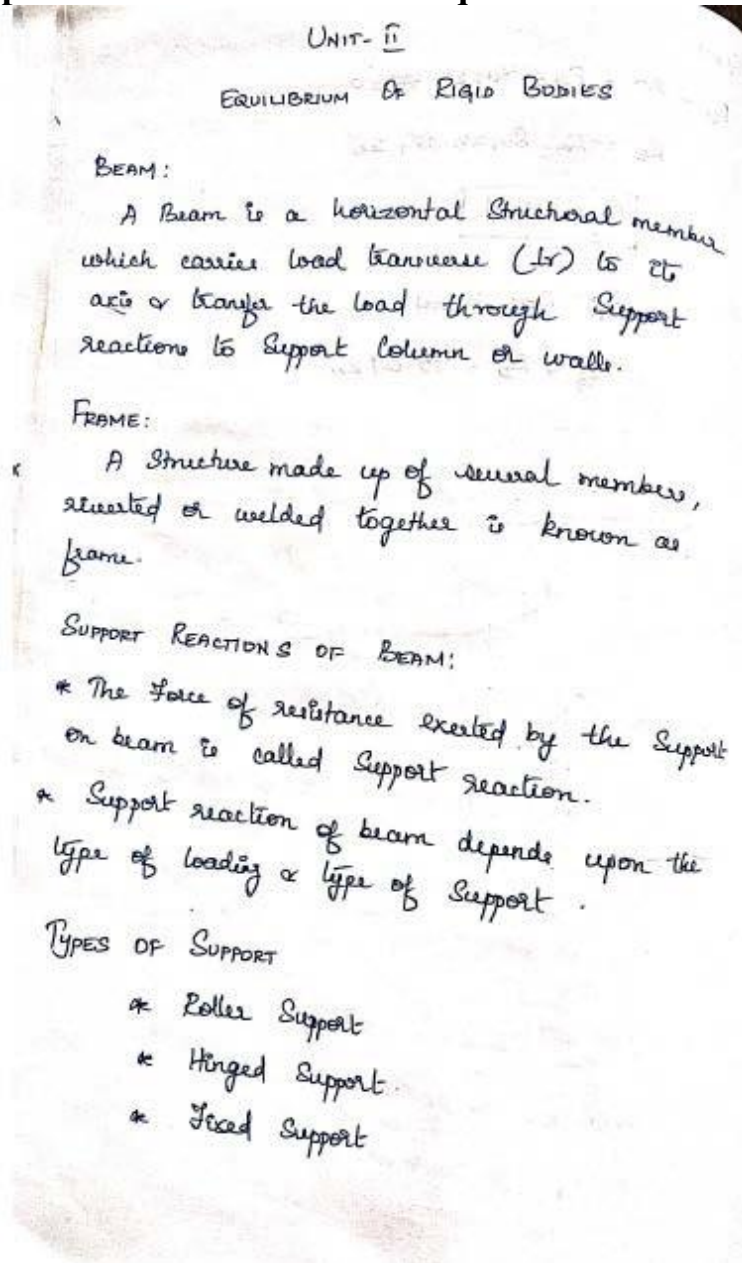 UNIT- II
EQUILIBRIUM OF RIGID BODIES
BEAM:
A Beam is a horizontal Structural member
which carries load transverse (⊥r) to its
axis & transfer the load through Support
reactions to Support Column or walls.
FRAME:
A Structure made up of several members,
riverted or welded together is known as
frame.
SUPPORT REACTIONS OF BEAM:
* The Force of resistance exerted by the Support
on beam is called Support reaction.
* Support reaction of beam depends upon the
type of loading & type of Support.
TYPES OF SUPPORT
* Roller Support
* Hinged Support.
* Fixed Support